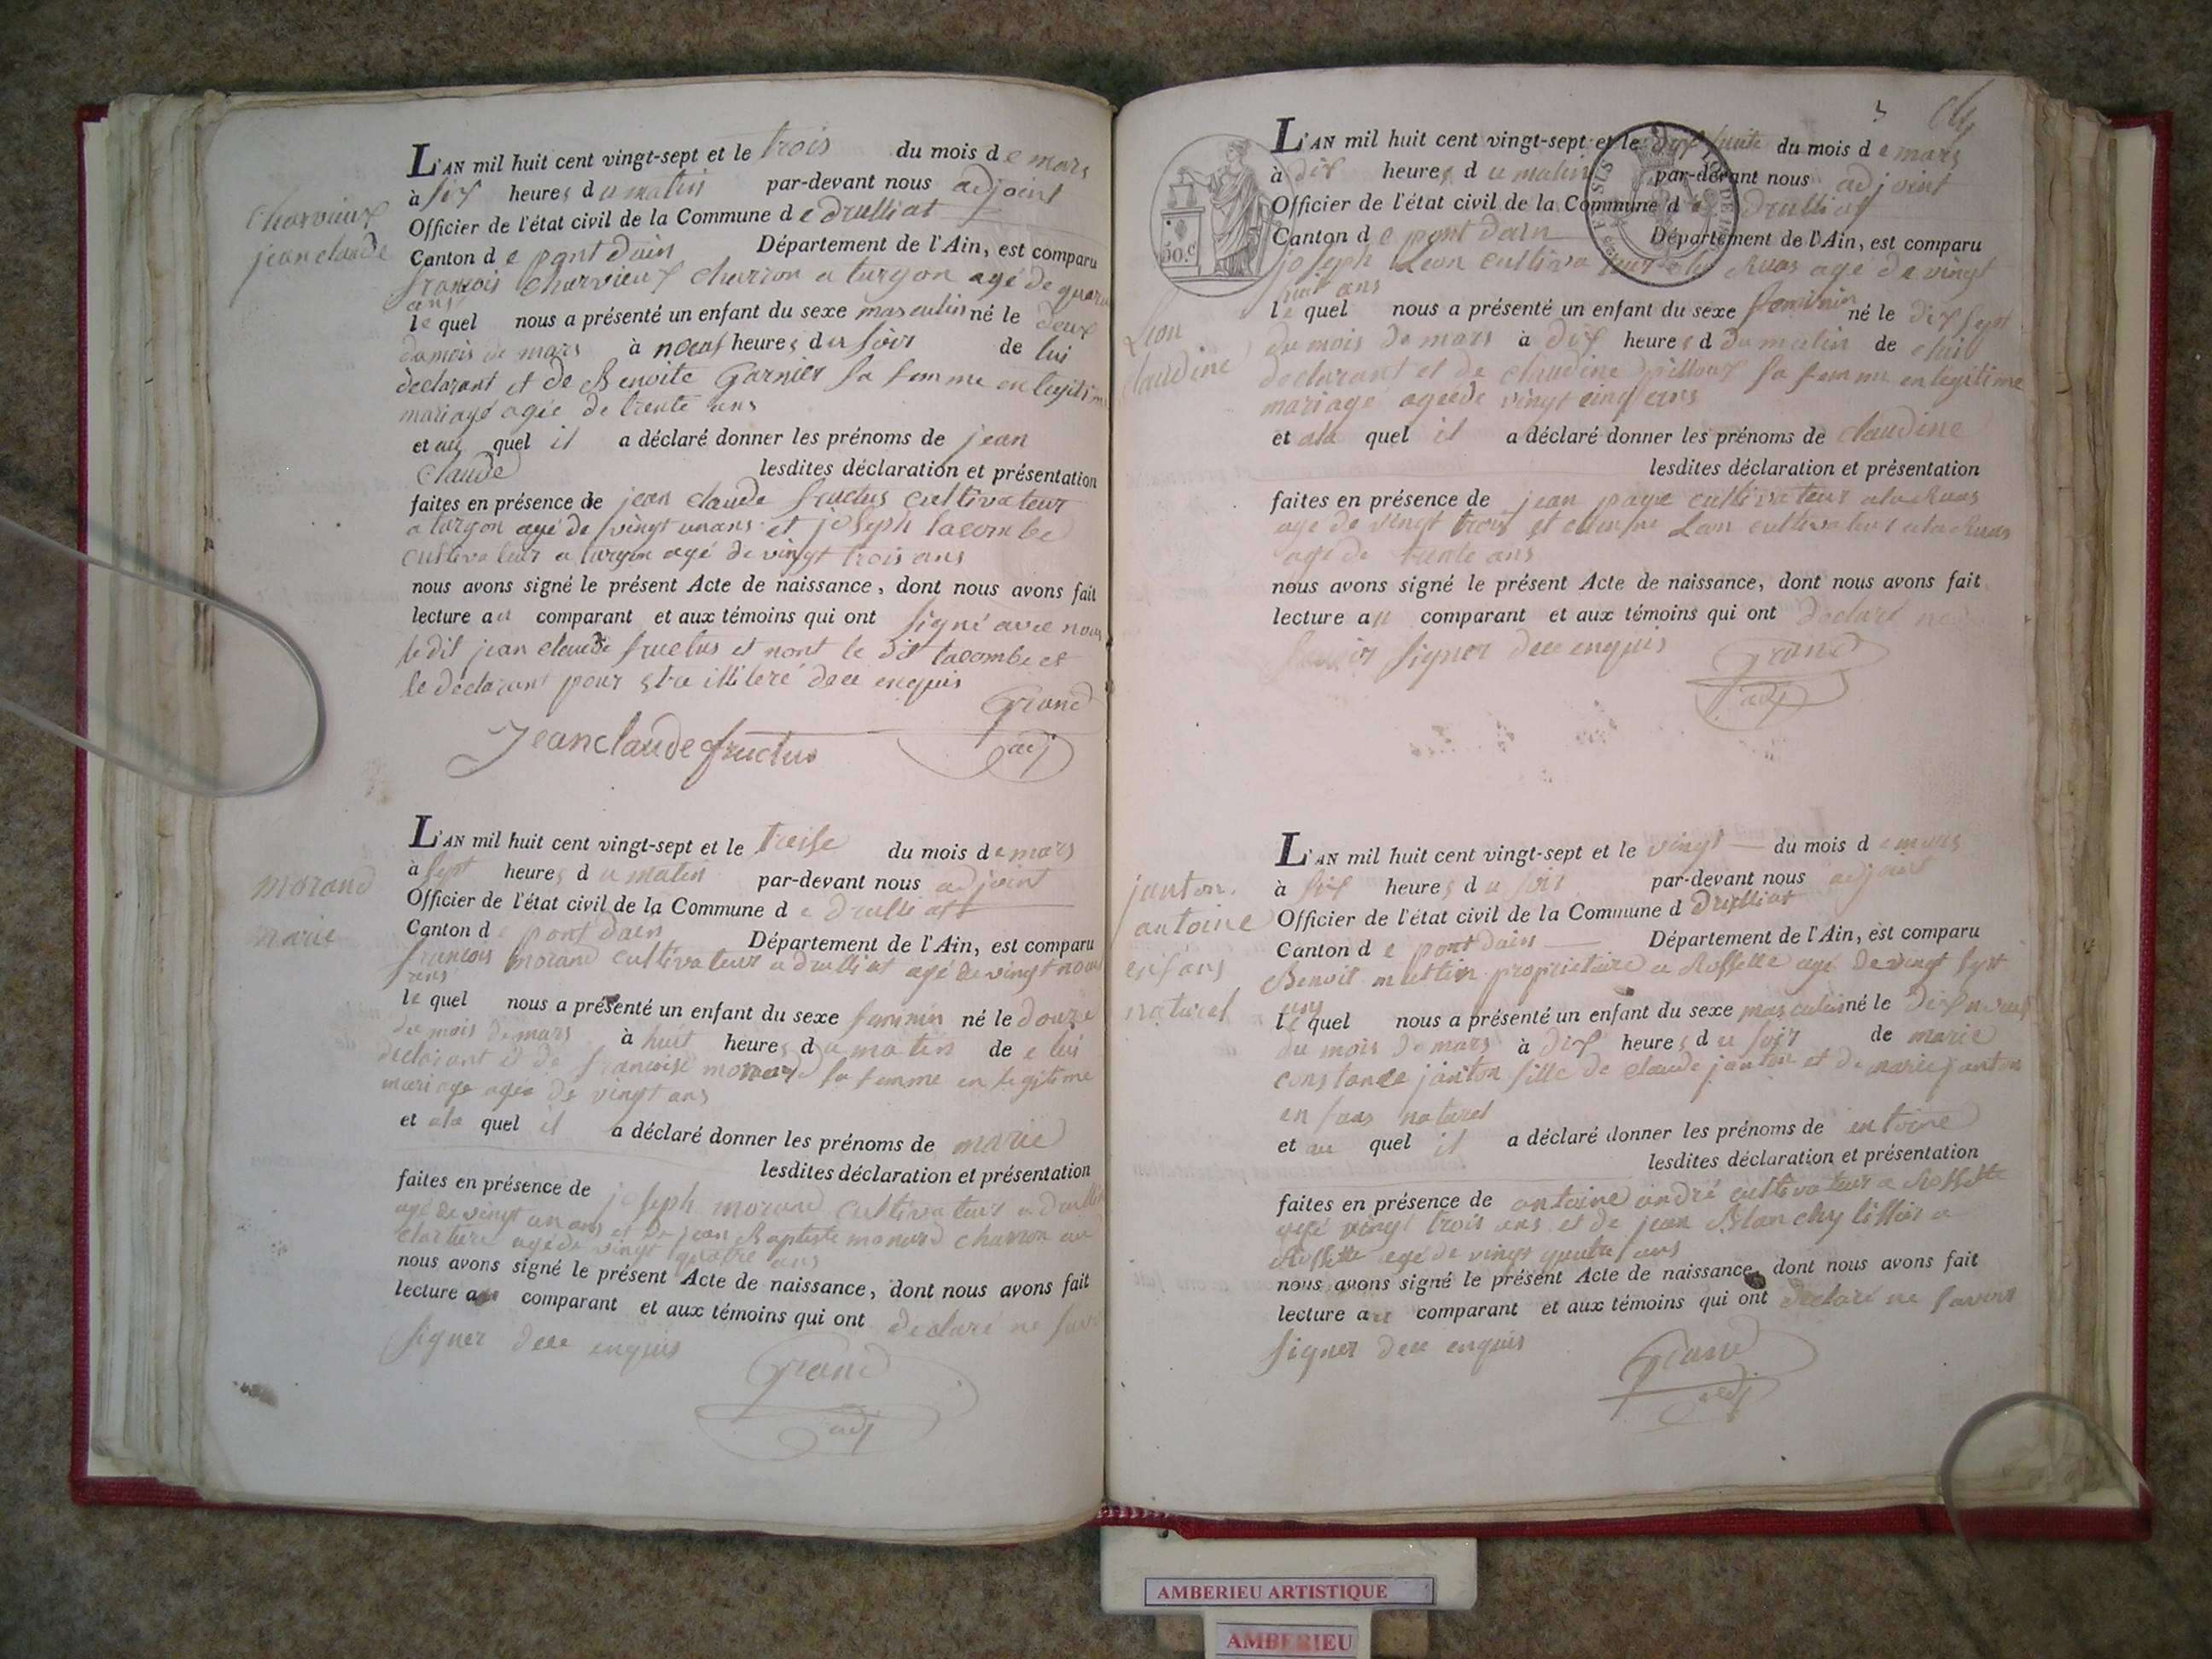 charvieux
jean claude
L'AN mil huit cent vingt-sept et le trois du mois de mars
à six heures du matin par-devant nous adjoint
Officier de l'état civil de la Commune de drulliat
Canton de pont dain Département de l'Ain, est comparu
francois charvieux charron a turgon agé de
ans
le quel nous a présenté un enfant du sexe masculin né le deux
du mois de mars à neuf heures du soir de lui
declarant et de Benoite Garnier sa femme en legitime
mariage agée de trente ans
et au quel il a déclaré donner les prénoms de jean
claude lesdites déclaration et présentation
faites en présence de jean claude fructus cultivateur
a turgon agé de vingt un ans et joseph lacombe
cultivateur a turgon agé de vingt trois ans
nous avons signé le présent Acte de naissance, dont nous avons fait
lecture au comparant et aux témoins qui ont signé avec nous
le dit jean claude fructus et nont le dit lacombe et
le declarant pour etre illiteré dece enquis
Grand
adj
Jeanclaude fructus
morand
marie
L'AN mil huit cent vingt-sept et le treise du mois de mars
à sept heures du matin par-devant nous adjoint
Officier de l'état civil de la Commune de drulliat
Canton de pont dain Département de l'Ain, est comparu
francois morand cultivateur a drulliat agé de vingt
ans
le quel nous a présenté un enfant du sexe feminin né le douze
du mois de mars à huit heures du matin de lui
declarant et de francoise sa femme en legitime
mariage agée de vingt ans
et ala quel il a déclaré donner les prénoms de marie
lesdites déclaration et présentation
faites en présence de joseph morand cultivateur a
agé de vingt un ans et de jean Baptiste charron au
agé de vingt quatre ans
nous avons signé le présent Acte de naissance, dont nous avons fait
lecture au comparant et aux témoins qui ont declaré ne
signer dece enquis
Grand
adj
3
L'AN mil huit cent vingt-sept et le dix huit du mois de mars
à dix heures du matin par-devant nous adjoint
Officier de l'état civil de la Commune de drulliat
Canton de pont dain Département de l'Ain, est comparu
50.C
joseph Leon cultivateur agé de vingt
huit ans
Lion
claudine
le quel nous a présenté un enfant du sexe feminin né le dix sept
du mois de mars à dix heures d du matin de
declarant et de claudine sa femme en legitime
mariage agée de vingt cinq ans
et ala quel il a déclaré donner les prénoms de claudine
lesdites déclaration et présentation
faites en présence de jean page cultivateur
agé de vingt trois et cultivateur
agé de trente ans
nous avons signé le présent Acte de naissance, dont nous avons fait
lecture au comparant et aux témoins qui ont declaré ne
savoir signer dece enquis
Grand
adj
janton
antoine
enfans
naturel
L'AN mil huit cent vingt-sept et le vingt du mois de mars
à six heures du soir par-devant nous adjoint
Officier de l'état civil de la Commune d Drulliat
Canton de pont dain Département de l'Ain, est comparu
Benoit proprietaire a Rossette agé de vingt sept
ans
le quel nous a présenté un enfant du sexe masculin né le dix neuf
du mois de mars à dix heures du soir de marie
constance janton fille de claude janton et de marie janton
enfans naturel
et au quel il a déclaré donner les prénoms de entoine
lesdites déclaration et présentation
faites en présence de antoine andré cultivateur a Rossette
agé vingt trois ans et de jean Blanchy a
Rossette agé de vingt quatre ans
nous avons signé le présent Acte de naissance, dont nous avons fait
lecture au comparant et aux témoins qui ont declaré ne savoir
signer dece enquis
Grand
adj
AMBERIEU ARTISTIQUE
AMBERIEU